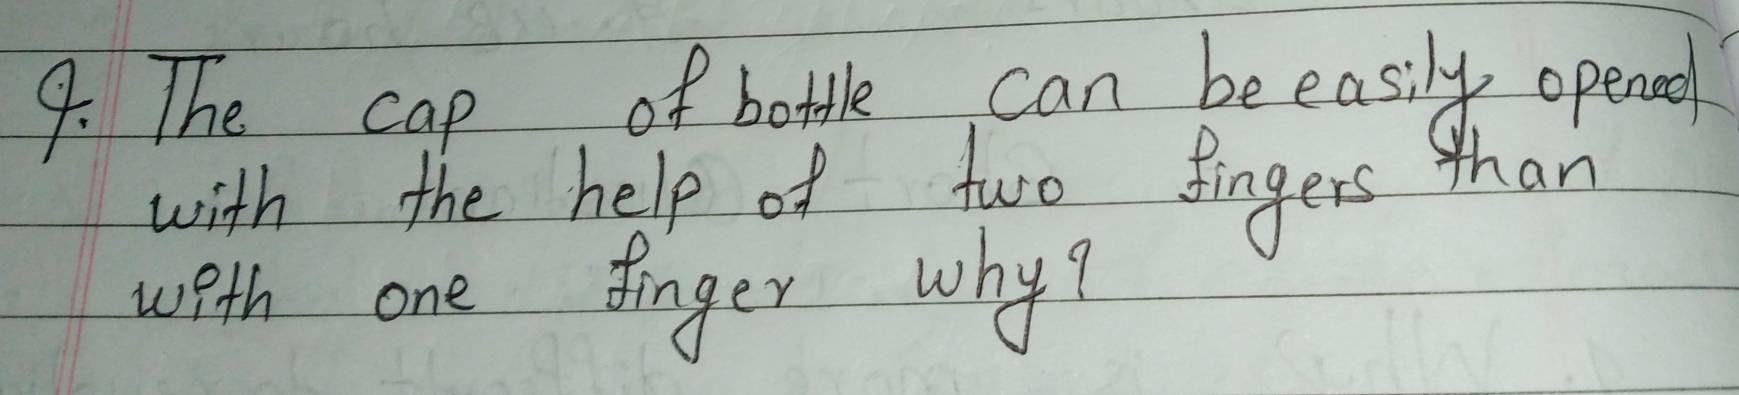 9. The cap of bottle can be easily opened
with the help of two fingers than
with one finger why?